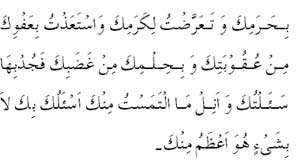 بِحَرَمِكَ وَ تَعَرَّضْتُ لِكَرَمِكَ وَاسْتَعَذْتُ بِعَفْوِكَ
مِنْ عُقُوْبَتِكَ وَ بِحِلْمِكَ مِنْ غَضَبِكَ فَجُدْبِهَا
سَئَلْتُكَ وَ اَنِلْ مَا الْتَمَسْتُ مِنْكَ اَسْئَلُكَ بِكَ لاَ
بِشَیْءٍ هُوَ اَعْظَمُ مِنْكَ۔